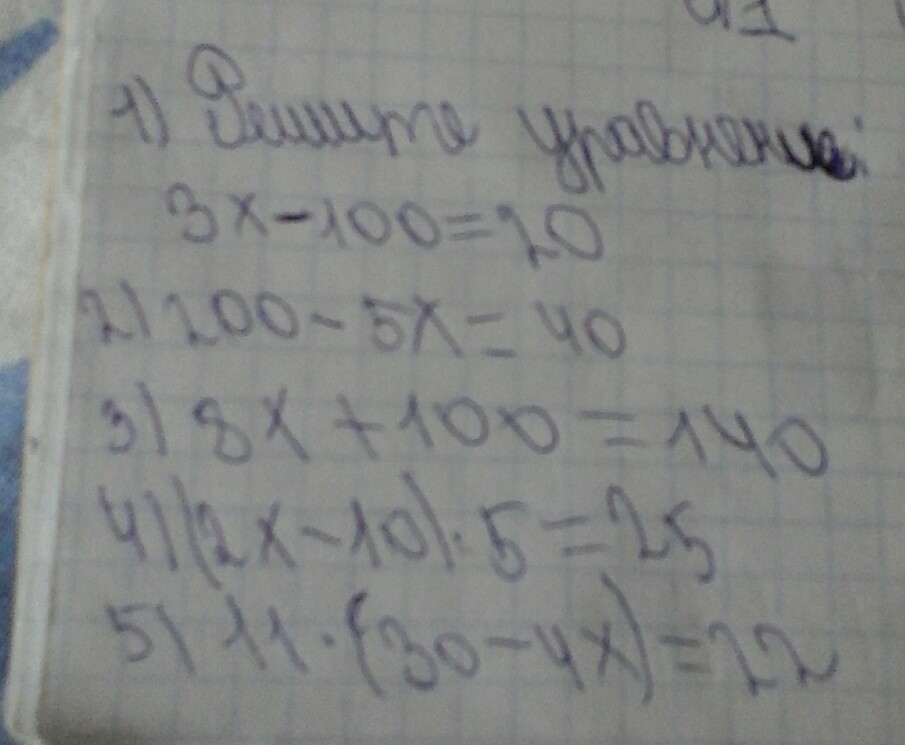 1) Решите уравнение:
3x-100=20
2) 200-5x=40
3) 8x+100=140
4) (2x-10)·5=25
5) 11·(30-4x)=22